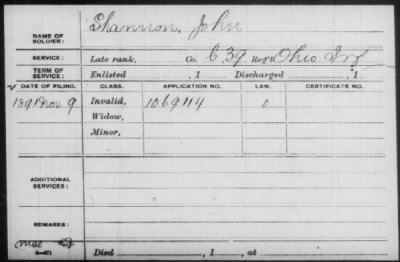 NAME OF SOLDIER: Shannon, John
SERVICE: Late rank, Co. C. 39 Reg't Ohio Inf
TERM OF SERVICE: Enlisted , 1 Discharged , 1
DATE OF FILING. CLASS. APPLICATION NO. LAW. CERTIFICATE NO.
1891 Nov. 9 Invalid, 1069114
Widow,
Minor,
ADDITIONAL SERVICES:
REMARKS:
Died , 1 , at